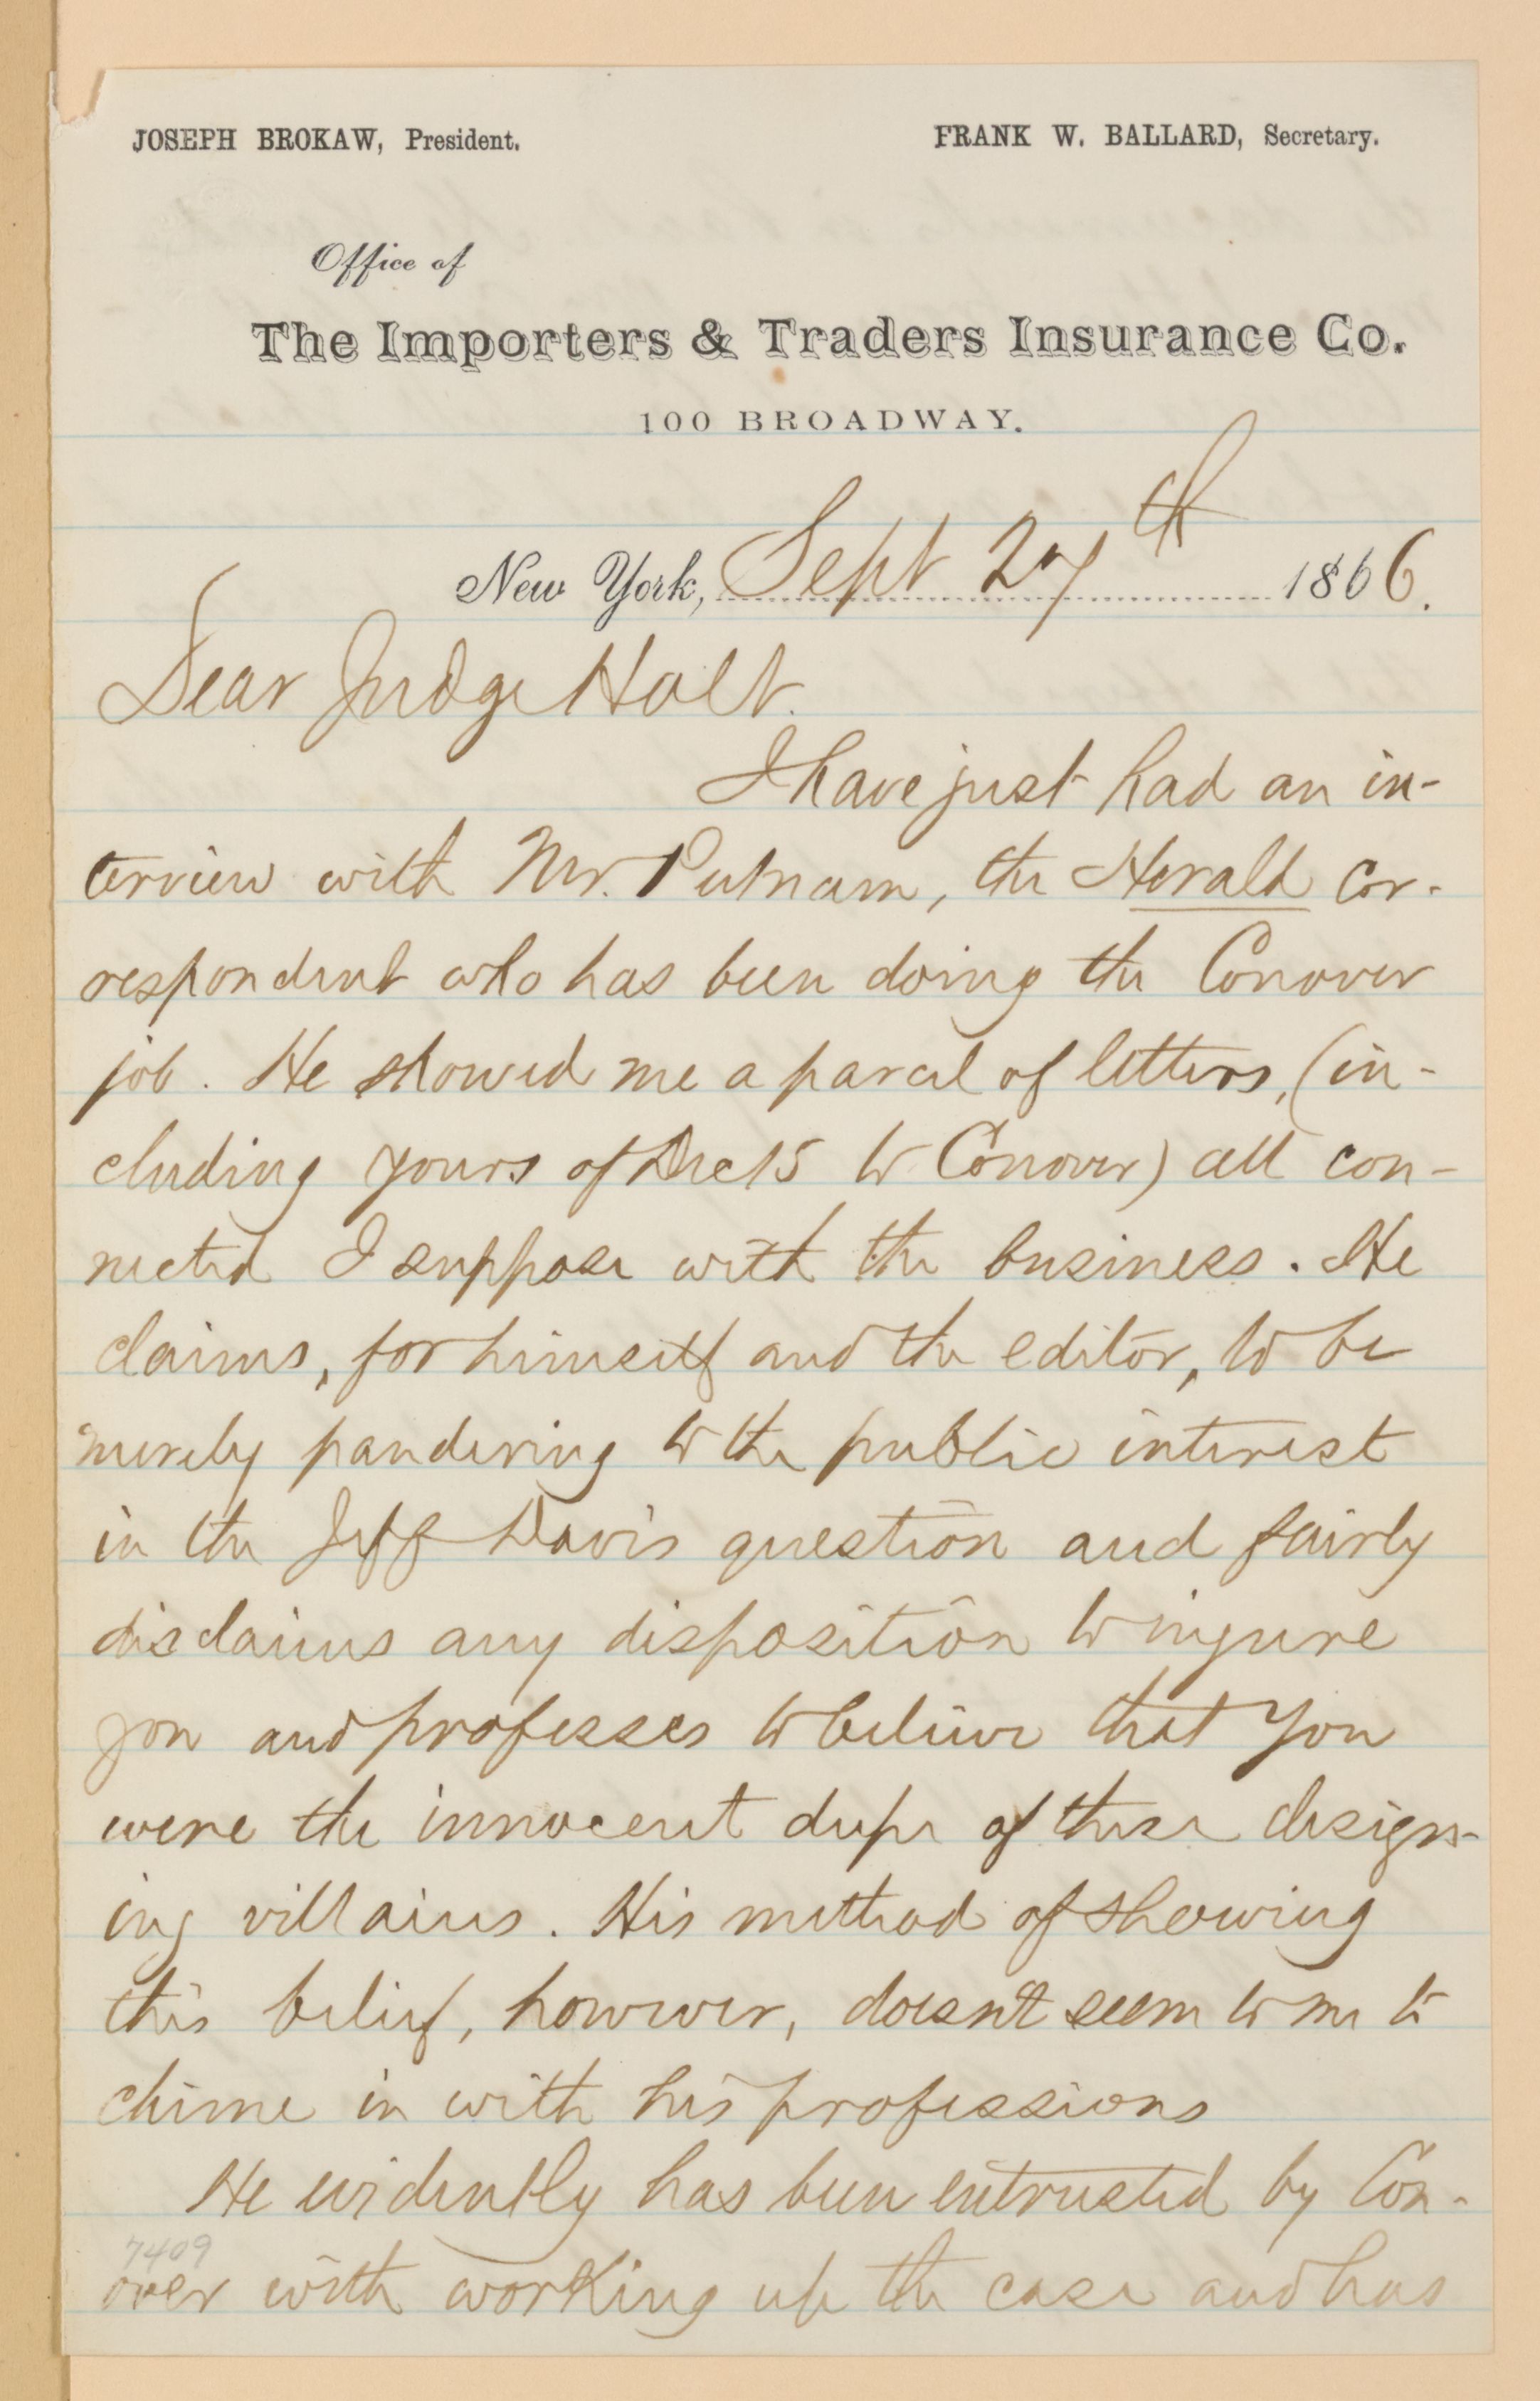 JOSEPH BROKAW, President. FRANK W. BALLARD, Secretary.
Office of
The Importers & Traders Insurance Co.
100 BROADWAY.
New York, Sept 27th 1866.
Dear Judge Holt.
I have just had an in-
terview with Mr. Putnam, the Herald cor-
respondent who has been doing the Conover
job. He showed me a parcel of letters, (in-
cluding yours of Dec 15 to Conover) all con-
nected I suppose with the business. He
claims, for himself and the editor, to be
merely pandering to the public interest
in the Jeff Davis question and fairly
disclaims any disposition to injure
you and professes to believe that you
were the innocent dupe of these design-
ing villains. His method of showing
this belief, however, doesn't seem to me to
chime in with his professions
He evidently has been entrusted by Con-
7409
over with working up the case and has